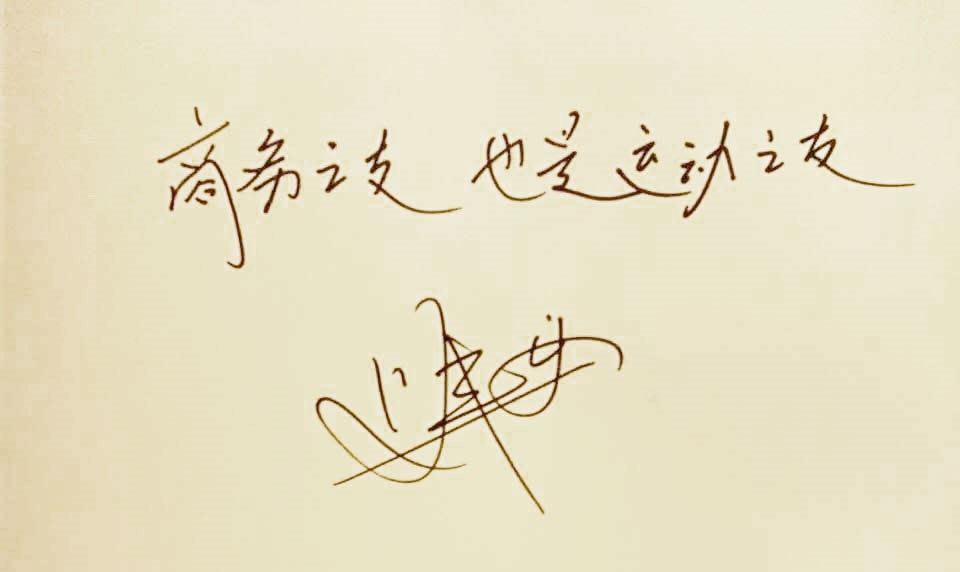 商务之友 也是运动之友